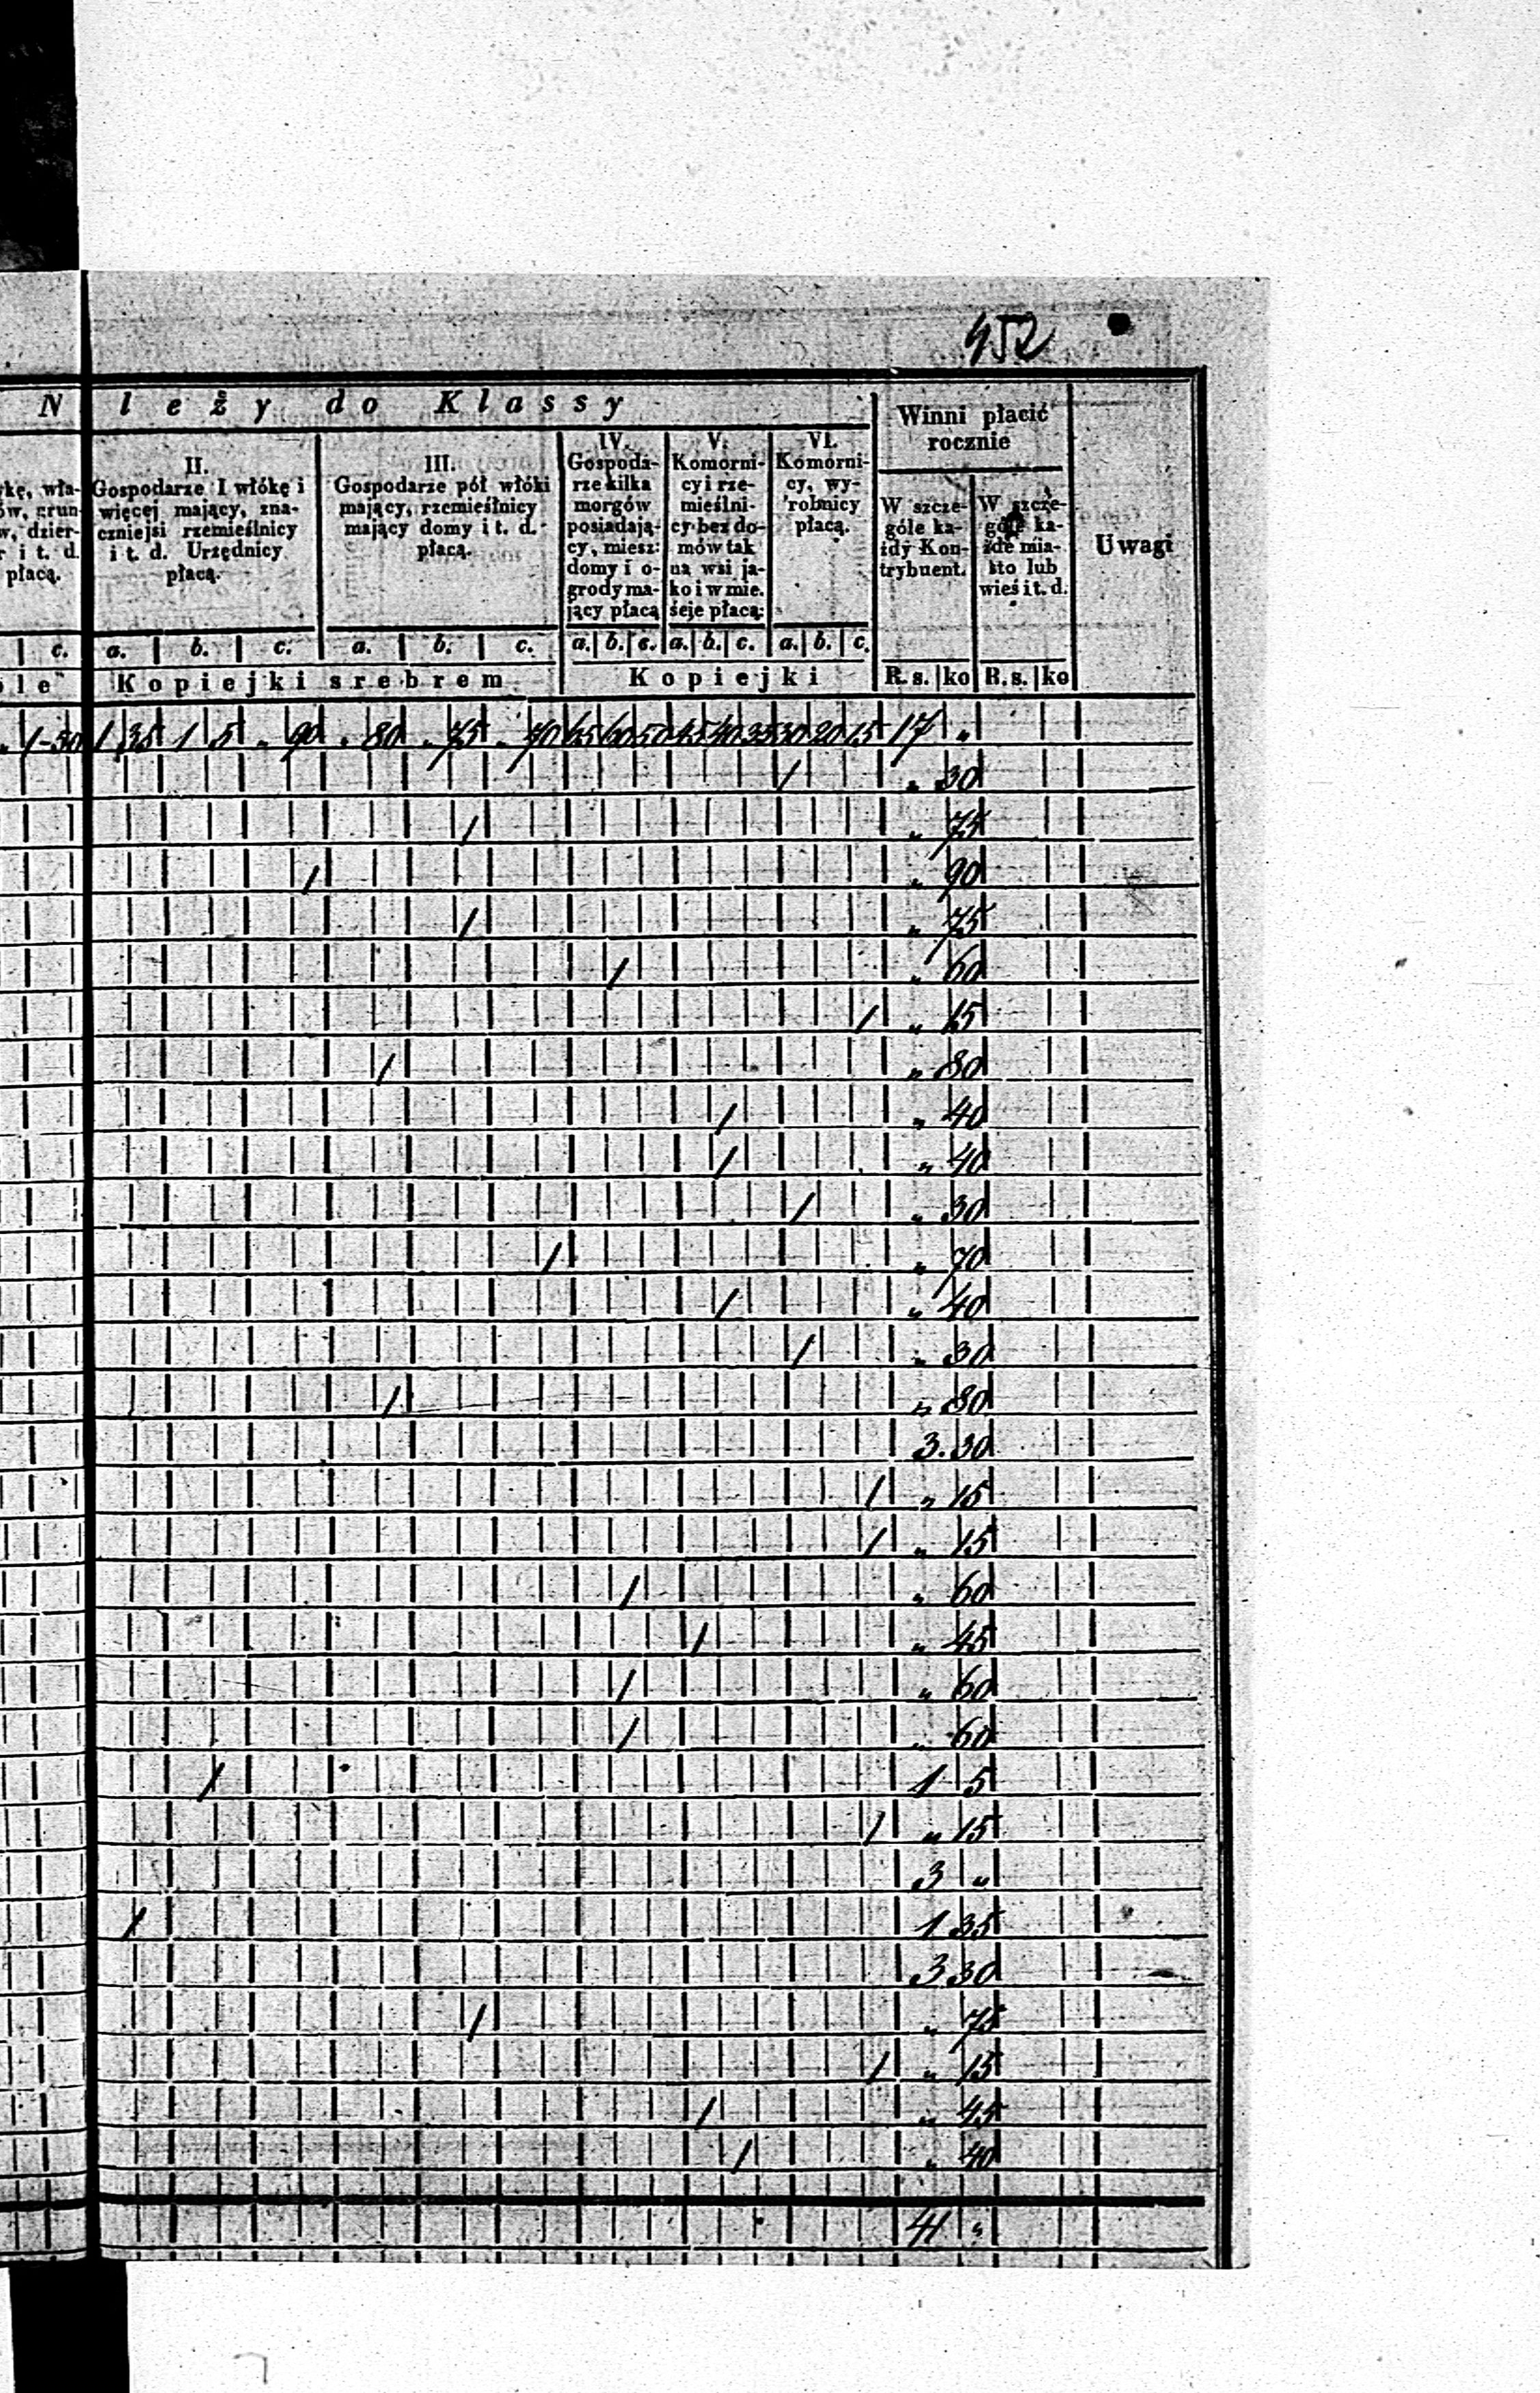 452
N leży do Klassy
Winni płacić
rocznie
Uwagi
kę, wła-
ów, grun-
w, dzier-
r i t. d.
płacą.
II.
Gospodarze I włókę i
więcej mający, zna-
czniejsi rzemieślnicy
i t. d. Urzędnicy
płacą.
III.
Gospodarze pół włóki
mający, rzemieślnicy
mający domy i t. d.
płacą.
IV.
Gospoda-
rze kilka
morgów
posiadają-
cy, miesz:
domy i o-
grody ma-
jący płacą
V.
Komorni-
cy i rze-
mieślni-
cy bez do-
mów tak
na wsi ja-
ko i w mie.
ście płacą:
VI.
Komorni-
cy, wy-
robnicy
płacą.
W szcze-
góle ka-
żdy Kon-
trybuent.
W szcze-
góle ka-
żde mia-
sto lub
wieś i t. d.
c. a. b. c. a. b. c. a. b. c. a. b. c. a. b. c.
le Kopiejki srebrem Kopiejki R.s. ko R.s. ko
1-50 1 35 1 5 „ 90 „ 80 „ 75 „ 70 65 60 50 45 40 35 30 20 15 17 „
/ „ 30
/ „ 75
/ „ 90
/ „ 75
/ „ 60
/ „ 15
/ „ 80
/ „ 40
/ „ 40
/ „ 30
/ „ 70
/ „ 40
/ „ 30
/ „ 80
3. 30
/ „ 15
/ „ 15
/ „ 60
/ „ 45
/ „ 60
/ „ 60
/ 1 5
/ „ 15
3 „
/ 1 35
3 30
/ „ 75
/ „ 15
/ „ 45
/ „ 40
41 „